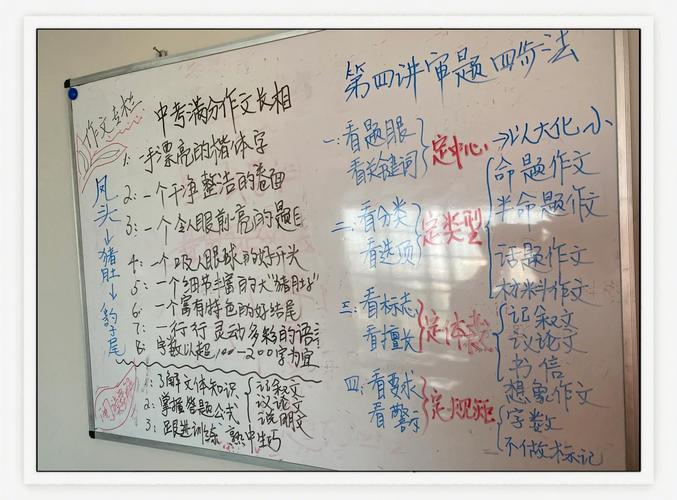 作文专栏
中考满分作文长相
1：一手漂亮的楷体字
2：一个干净整洁的卷面
3：一个令人眼前一亮的题目
4：一个吸人眼球的好开头
5：一个细节丰富的大"猪肚子"
6：一个富有特色的好结尾
7：一行行灵动多彩的语言
8：字数以超100-200字为宜
凤头→猪肚→豹尾
1：了解文体知识
2：掌握答题公式
3：跟进训练 熟中生巧
记叙文
议论文
说明文
第四讲审题四步法
一：看题眼
看关键词
定中心
→以大化小
二：看分类
看选项
定类型
命题作文
半命题作文
话题作文
材料作文
三：看标志
看擅长
定体裁
记叙文
议论文
书信
想象作文
四：看要求
看警示
定规矩
字数
不做标记